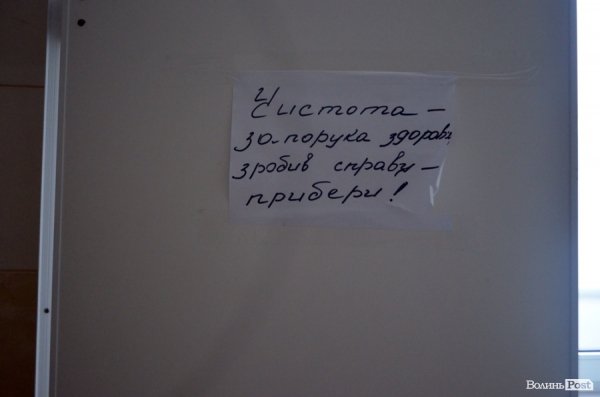 Чистота –
запорука здоров'я
зробив справу –
прибери!
ВолиньPost